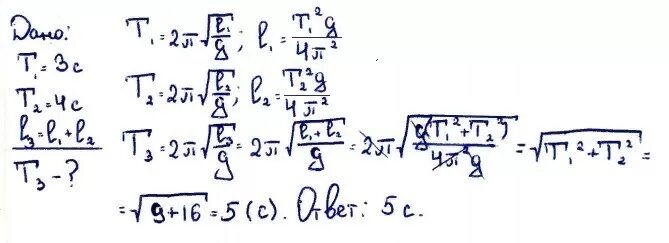 Дано:
T₁=3с
T₂=4с
l₃=l₁+l₂
T₃-?
T₁=2π√(l₁/g); l₁=T₁²g/4π²
T₂=2π√(l₂/g); l₂=T₂²g/4π²
T₃=2π√(l₃/g)=2π√((l₁+l₂)/g)=2π√(g(T₁²+T₂²)/4π²g)=√(T₁²+T₂²)=
=√(9+16)=5(с). Ответ: 5с.